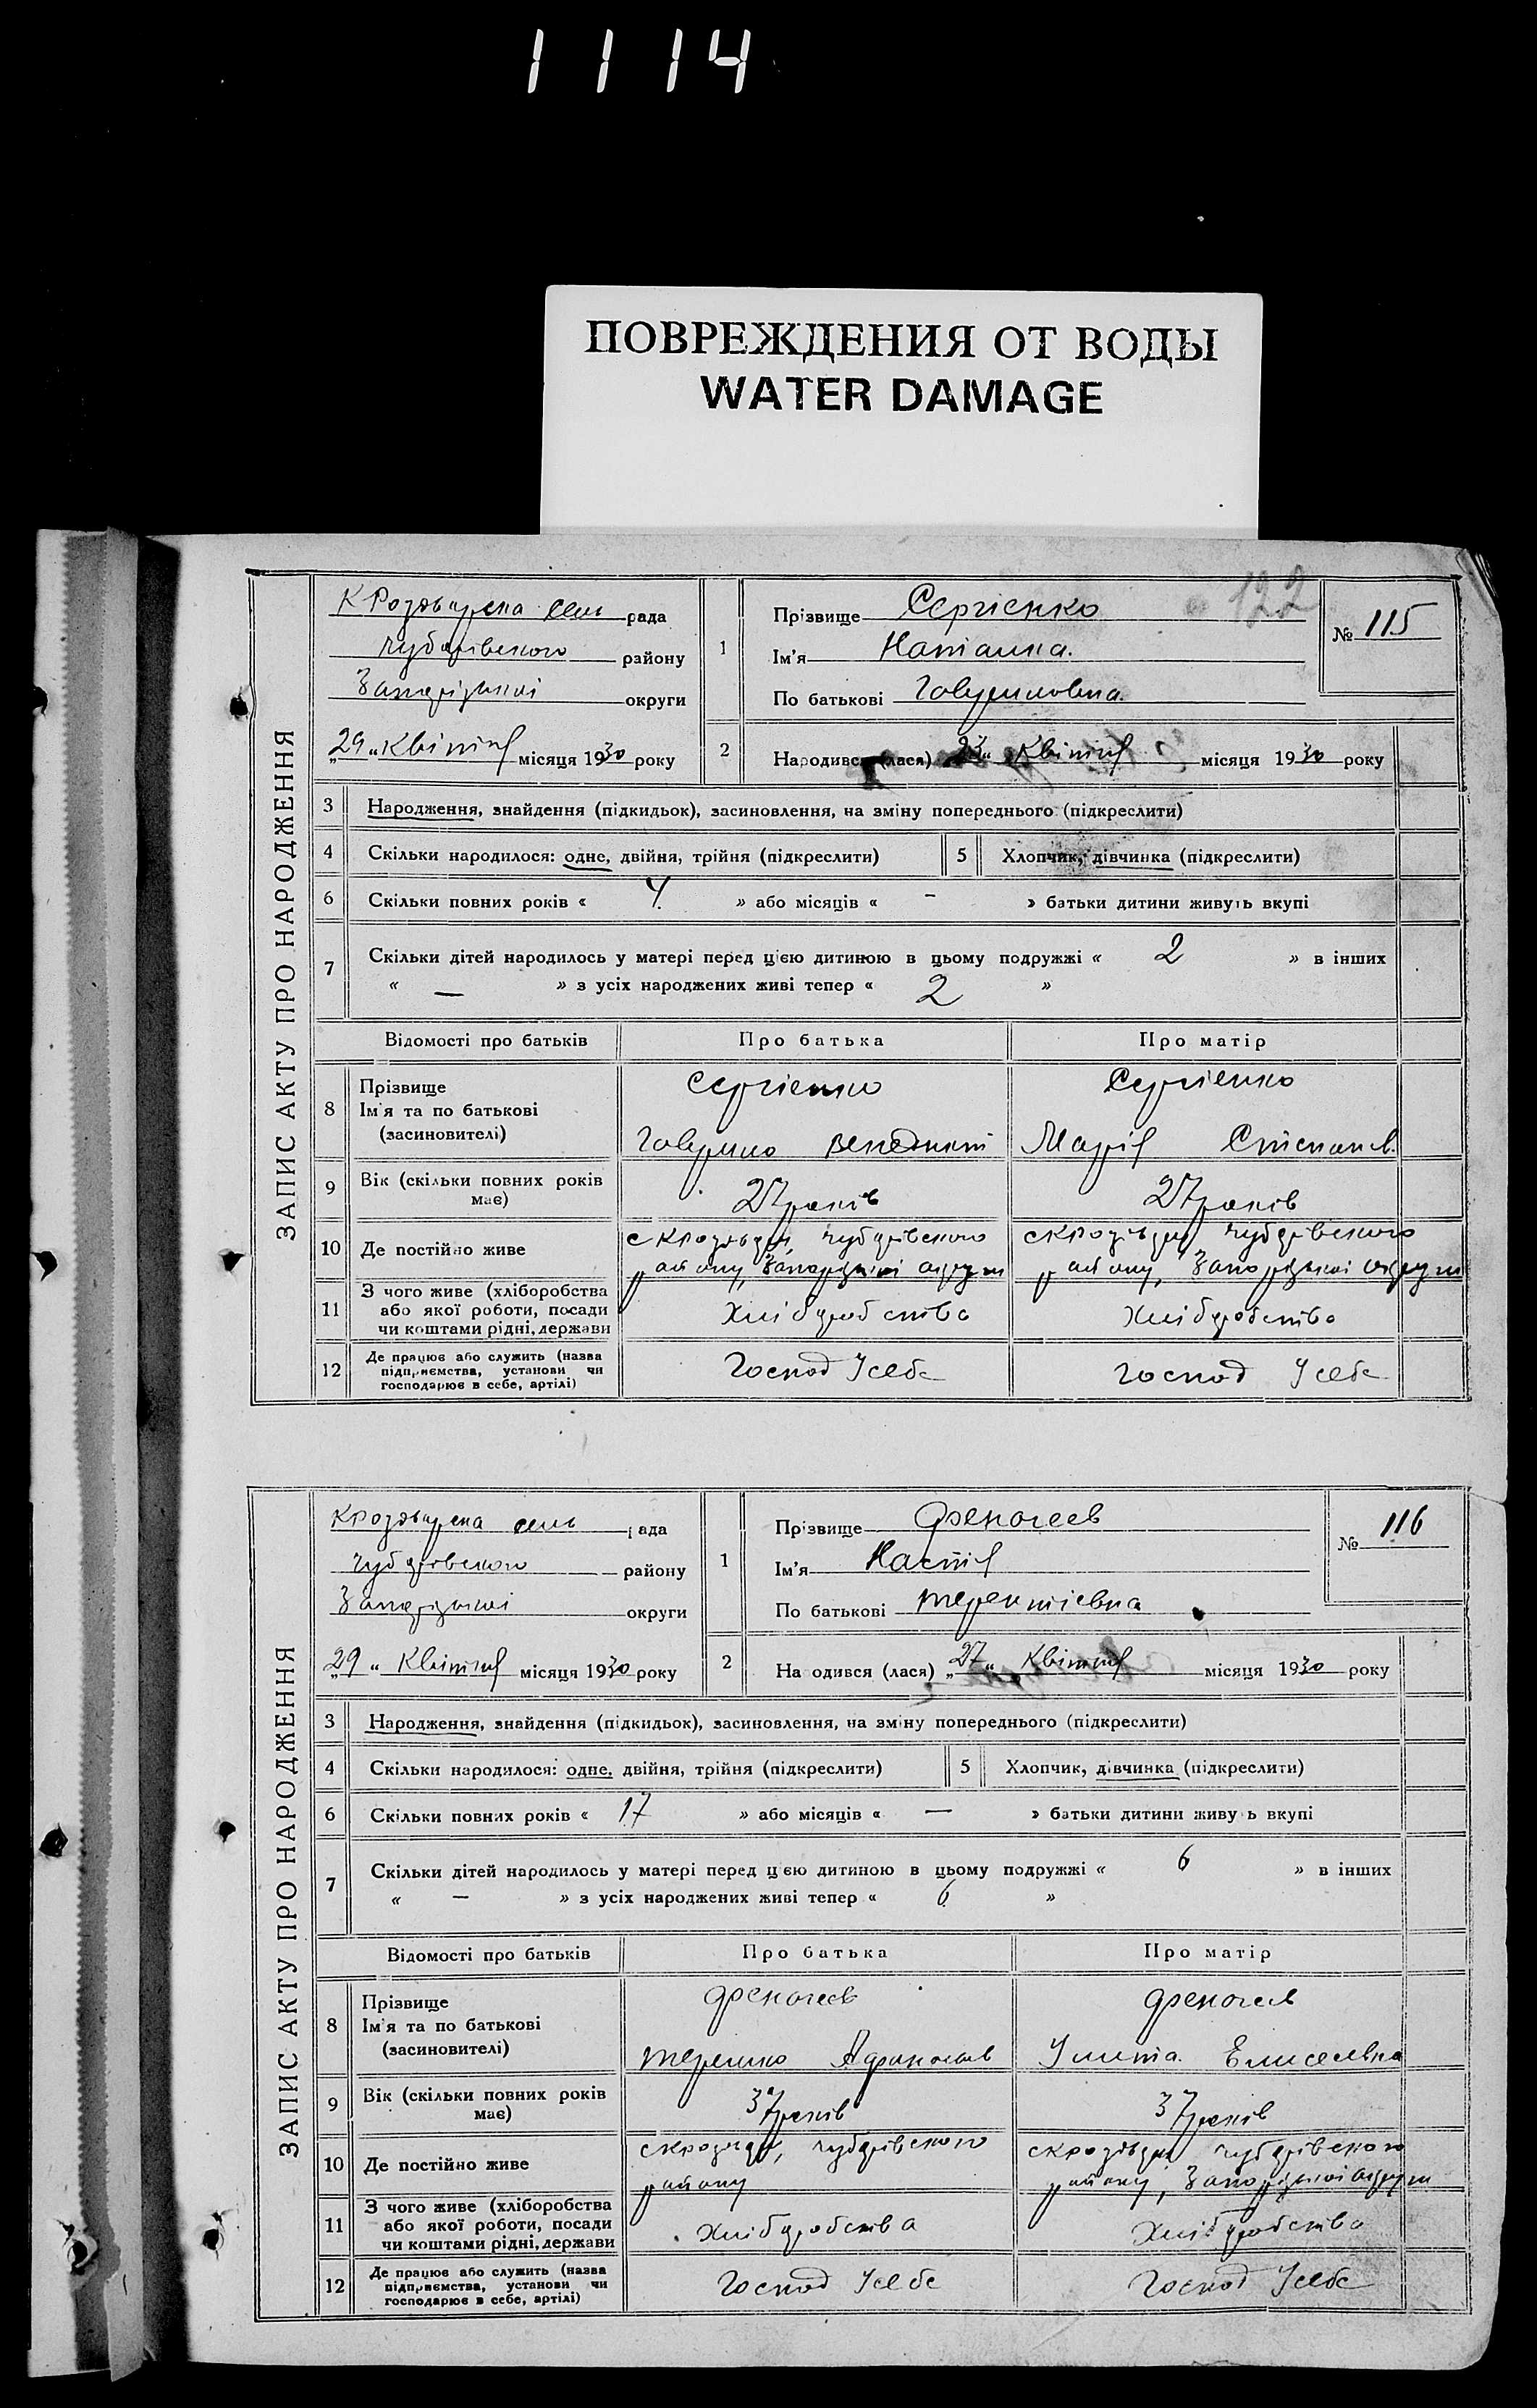 1114
ПОВРЕЖДЕНИЯ ОТ ВОДЫ
WATER DAMAGE
122
ЗАПИС АКТУ ПРО НАРОДЖЕННЯ
сель рада
Чубарівського району
Запорізької округи
„29" Квітня місяця 1930 року
1
Прізвище Сергієнко
Ім'я Наталка.
По батькові
№ 115
2
Народився (лася) 23 " Квітня місяця 1930 року
3 Народження, знайдення (підкидьок), засиновлення, на зміну попереднього (підкреслити)
4 Скільки народилося: одне, двійня, трійня (підкреслити)
5 Хлопчик, дівчинка (підкреслити)
6 Скільки повних років « 4 » або місяців « – » батьки дитини живуть вкупі
7 Скільки дітей народилось у матері перед цією дитиною в цьому подружжі « 2 » в інших
« — » з усіх народжених живі тепер « 2 »
Відомості про батьків Про батька Про матір
8 Прізвище
Ім'я та по батькові
(засиновителі)
Сергієнко
Гаврило
Сергієнко
Марія Степанів.
9 Вік (скільки повних років
має)
27 років
27 років
10 Де постійно живе
Чубарівского
району, Запорізької округи
Чубарівского
району, Запорізької округи
11 З чого живе (хліборобства
або якої роботи, посади
чи коштами рідні, держави
Хліборобство
Хліборобство
12 Де працює або служить (назва
підприємства, установи чи
господарює в себе, артілі)
Господ Усебе
Господ Усебе
ЗАПИС АКТУ ПРО НАРОДЖЕННЯ
сель рада
Чубарівського району
Запорізької округи
„29 " Квітня місяця 1930 року
1
Прізвище Феногеев
Ім'я Настя
По батькові Терентіевна
№ 116
2
На одився (лася) „27" Квітня місяця 1930 року
3 Народження, знайдення (підкидьок), засиновлення, на зміну попереднього (підкреслити)
4 Скільки народилося: одне, двійня, трійня (підкреслити)
5 Хлопчик, дівчинка (підкреслити)
6 Скільки повних років « 17 » або місяців « — » батьки дитини живу ь вкупі
7 Скільки дітей народилось у матері перед цією дитиною в цьому подружжі « 6 » в інших
« – » з усіх народжених живі тепер « 6 »
Відомості про батьків Про батька Про матір
8 Прізвище
Ім'я та по батькові
(засиновителі)
Феногеев
Терешко
Феногеев
Улита Елисеевна
9 Вік (скільки повних років
має)
37 років
37 років
10 Де постійно живе
Чубарівского
району
Чубарівского
району, Запорізької округи
11 З чого живе (хліборобства
або якої роботи, посади
чи коштами рідні, держави
Хліборобства
Хліборобство
12 Де працює або служить (назва
підприємства, установи чи
господарює в себе, артілі)
Господ Усебе
Господ Усебе